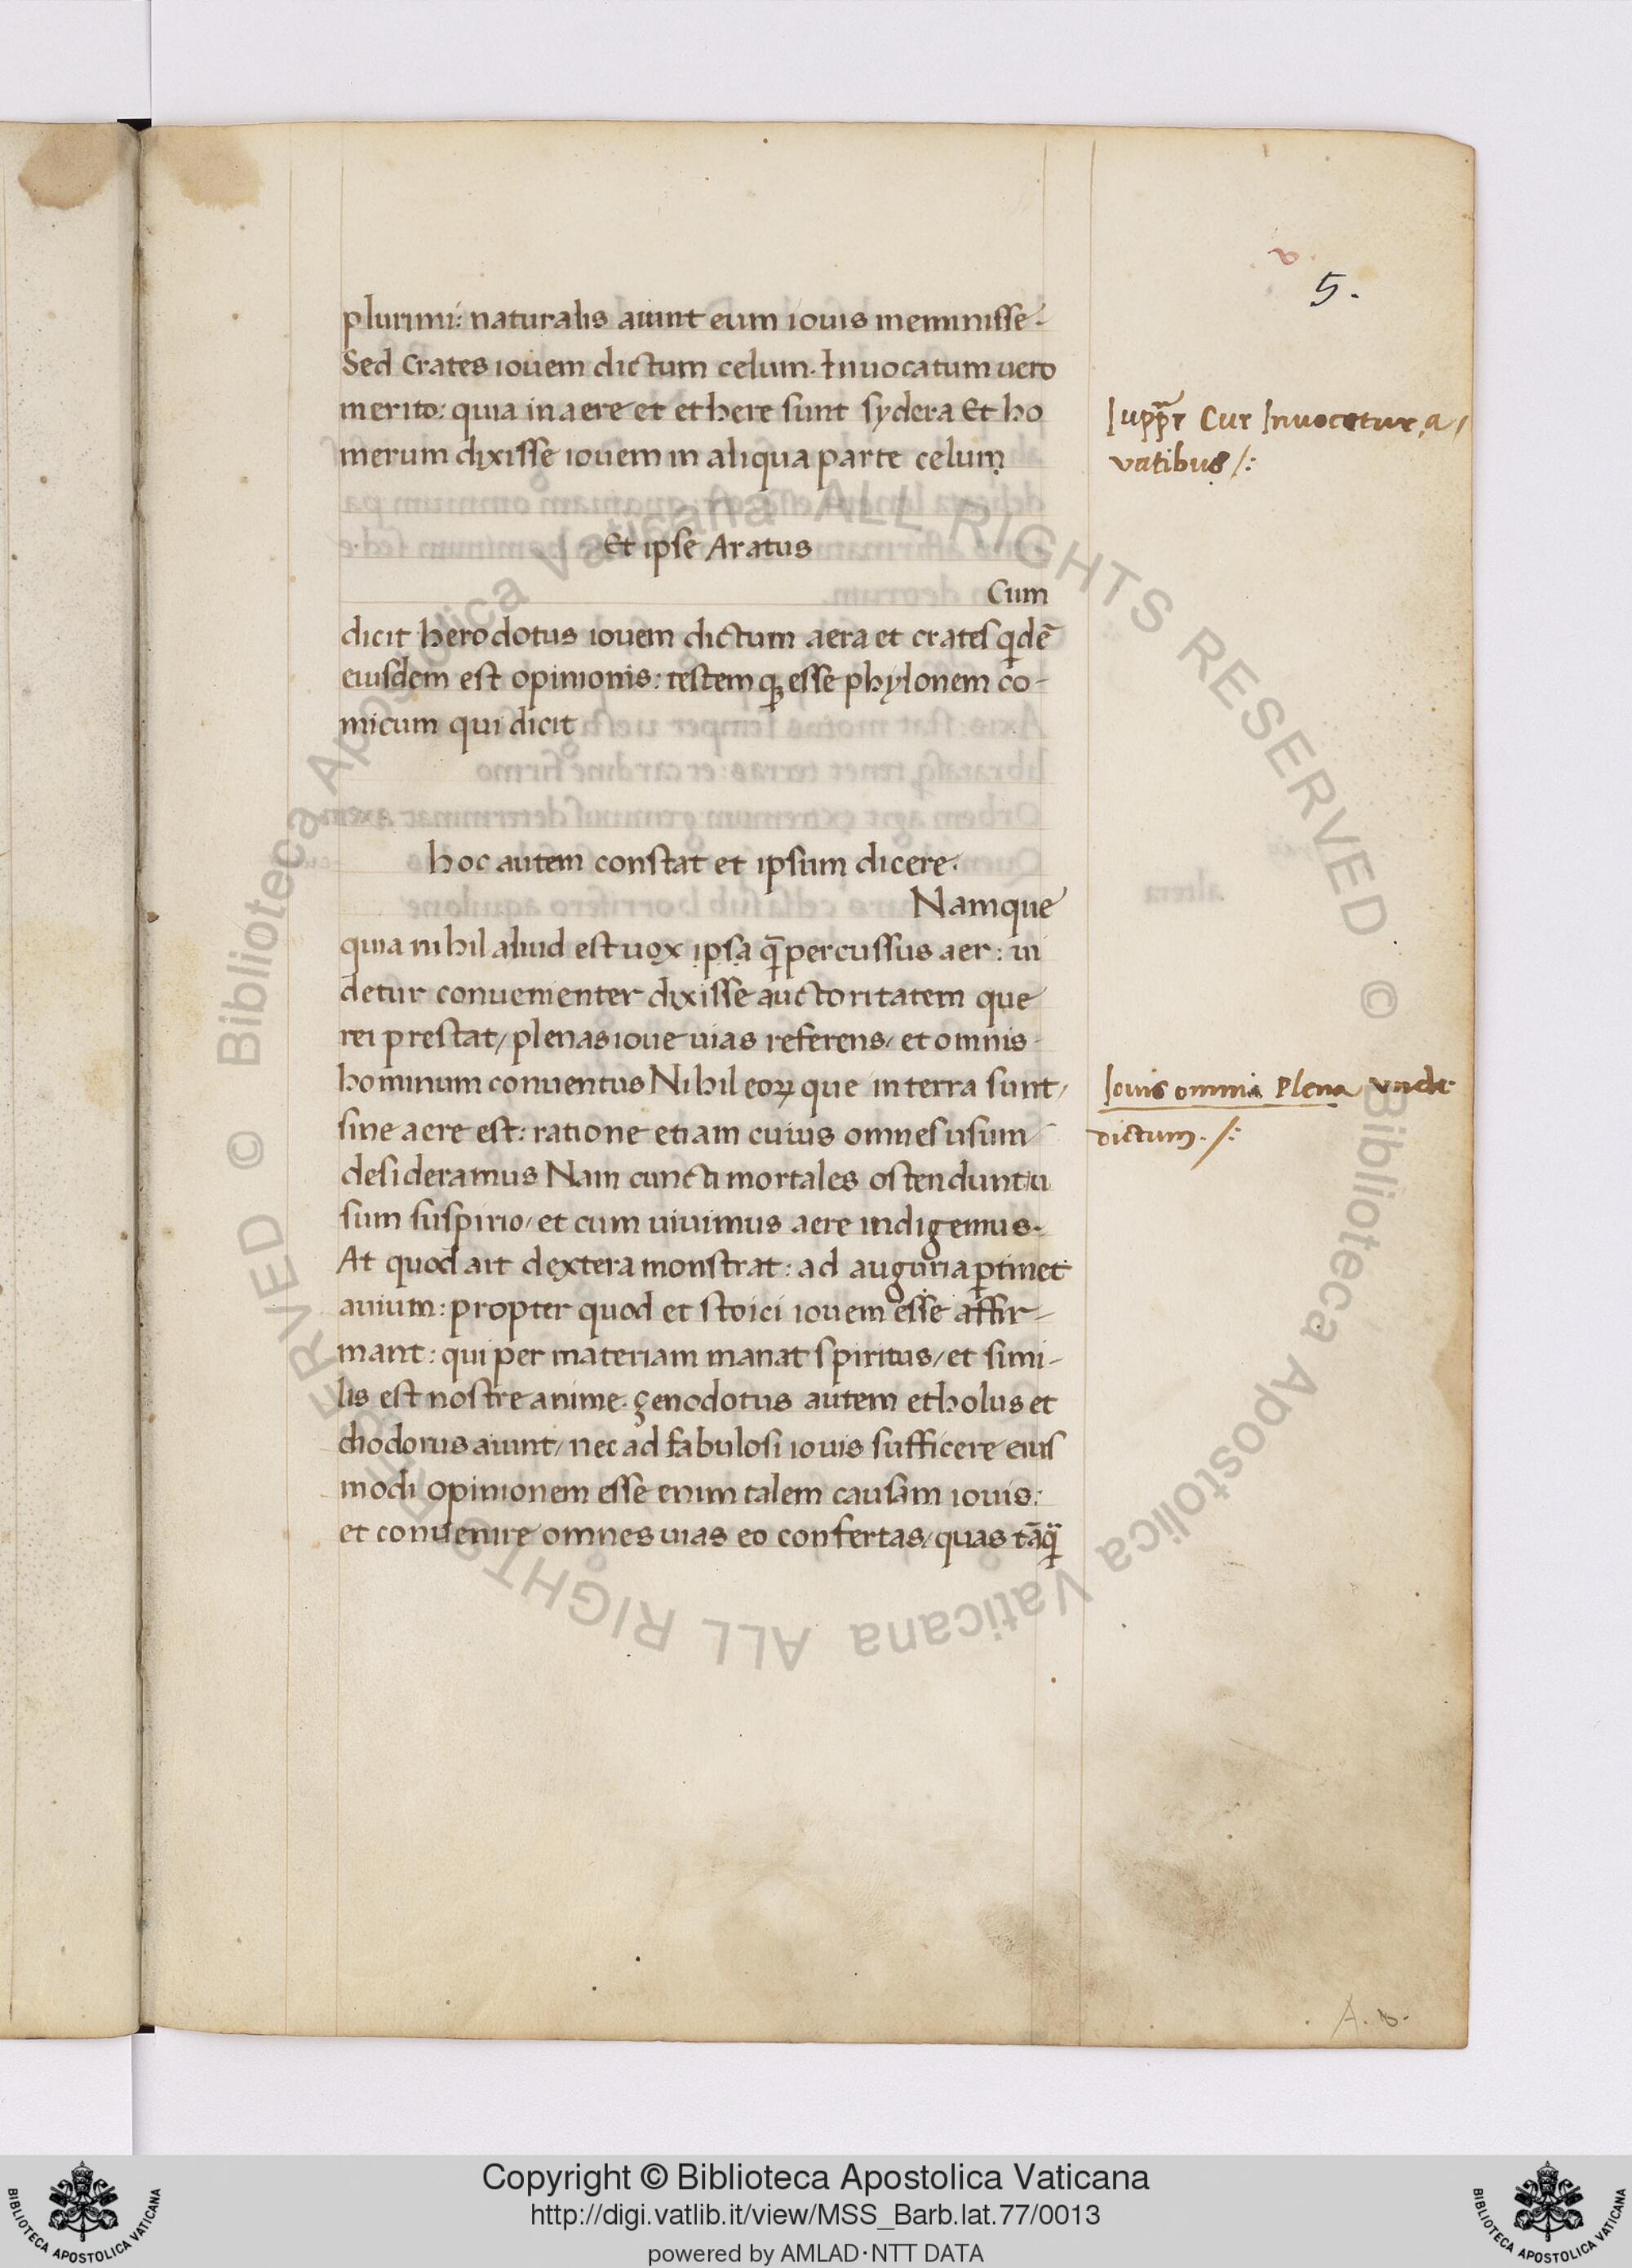 5.
plurimi: naturalis aiunt eum iouis meminisse.
Sed Crates iouem dictum celum. Inuocatum uero
merito: quia in aere et ethere sunt sydera Et ho
merum dixisse iouem in aliqua parte celum
Iuppr̄ Cur Inuocetur a/
vatibus /:
Et ipse Aratus
Cum
dicit herodotus iouem dictum aera et crates qdē
eiusdem est opinionis: testemqꝫ esse phylonem co-
micum qui dicit
hoc autem constat et ipsum dicere.
Namque
quia nihil aliud est uox ipsa q̄ percussus aer: ui
detur conuenienter dixisse auctoritatem que
rei prestat/ plenas ioue uias referens/ et omnis
hominum conuentus Nihil eoꝝ que in terra sunt/
sine aere est: ratione etiam cuius omnes usum
desideramus Nam cuncti mortales ostendunt u
sum suspirio/ et cum uiuimus aere indigemus.
Iouis omnia Plena vnde
dictum. /:
At quod ait dextera monstrat: ad auguria ꝑtinet
auium: propter quod et stoici iouem esse affir-
mant: qui per materiam manat spiritus/ et simi-
lis est nostre anime. çenodotus autem etholus et
diodorus aiunt/ nec ad fabulosi iouis sufficere eius
modi opinionem esse enim talem causam iouis:
et conuenire omnes uias eo confertas/ quas tāq̄
A.
© Biblioteca Apostolica Vaticana ALL RIGHTS RESERVED
© Biblioteca Apostolica Vaticana ALL RIGHTS RESERVED
BIBLIOTECA APOSTOLICA VATICANA
Copyright © Biblioteca Apostolica Vaticana
http://digi.vatlib.it/view/MSS_Barb.lat.77/0013
powered by AMLAD·NTT DATA
BIBLIOTECA APOSTOLICA VATICANA